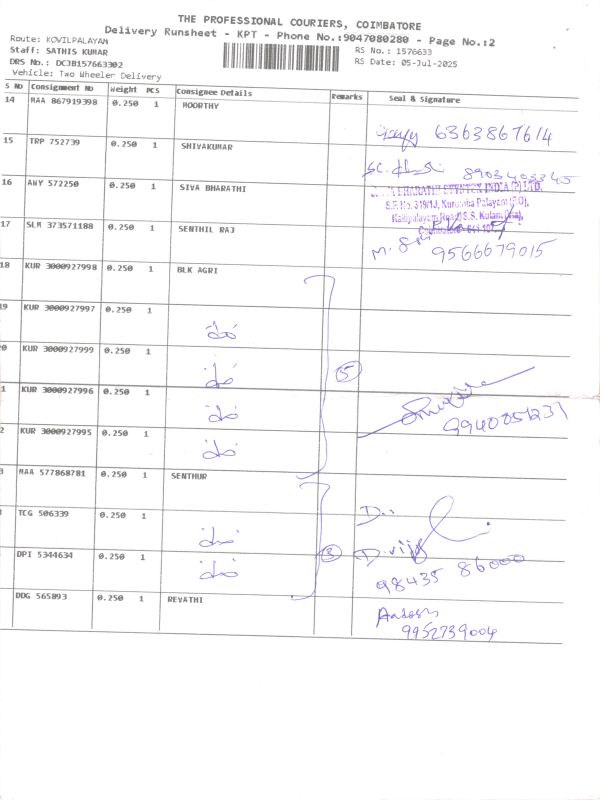 THE PROFESSIONAL COURIERS, COIMBATORE
Delivery Runsheet - KPT - Phone No.:9047080280 - Page No.:2
Route: KOVILPALAYAM
Staff: SATHIS KUMAR
DRS No.: DCJB157663302
Vehicle: Two Wheeler Delivery
RS No.: 1576633
RS Date: 05-Jul-2025
S No Consignment No Weight PCS Consignee Details Remarks Seal & Signature
14 MAA 867919398 0.250 1 MOORTHY
6363867614
15 TRP 752739 0.250 1 SHIVAKUMAR
8903403345
16 ANY 572250 0.250 1 SIVA BHARATHI
BHARATHI INDIA (P) LTD.
S.F. No. 319/1J, Kurumba Palayam (PO),
Kalipalayam Road, S.S. Kulam (Via),
Coimbatore - 641 107.
17 SLM 373571188 0.250 1 SENTHIL RAJ
9566679015
18 KUR 3000927998 0.250 1 BLK AGRI
19 KUR 3000927997 0.250 1
0 KUR 3000927999 0.250 1
5
1 KUR 3000927996 0.250 1
9940851231
2 KUR 3000927995 0.250 1
3 MAA 577868781 0.250 1 SENTHUR
TCG 506339 0.250 1
DPI 5344634 0.250 1
3
D. vijy
98435 86000
DDG 565893 0.250 1 REVATHI
9952739004